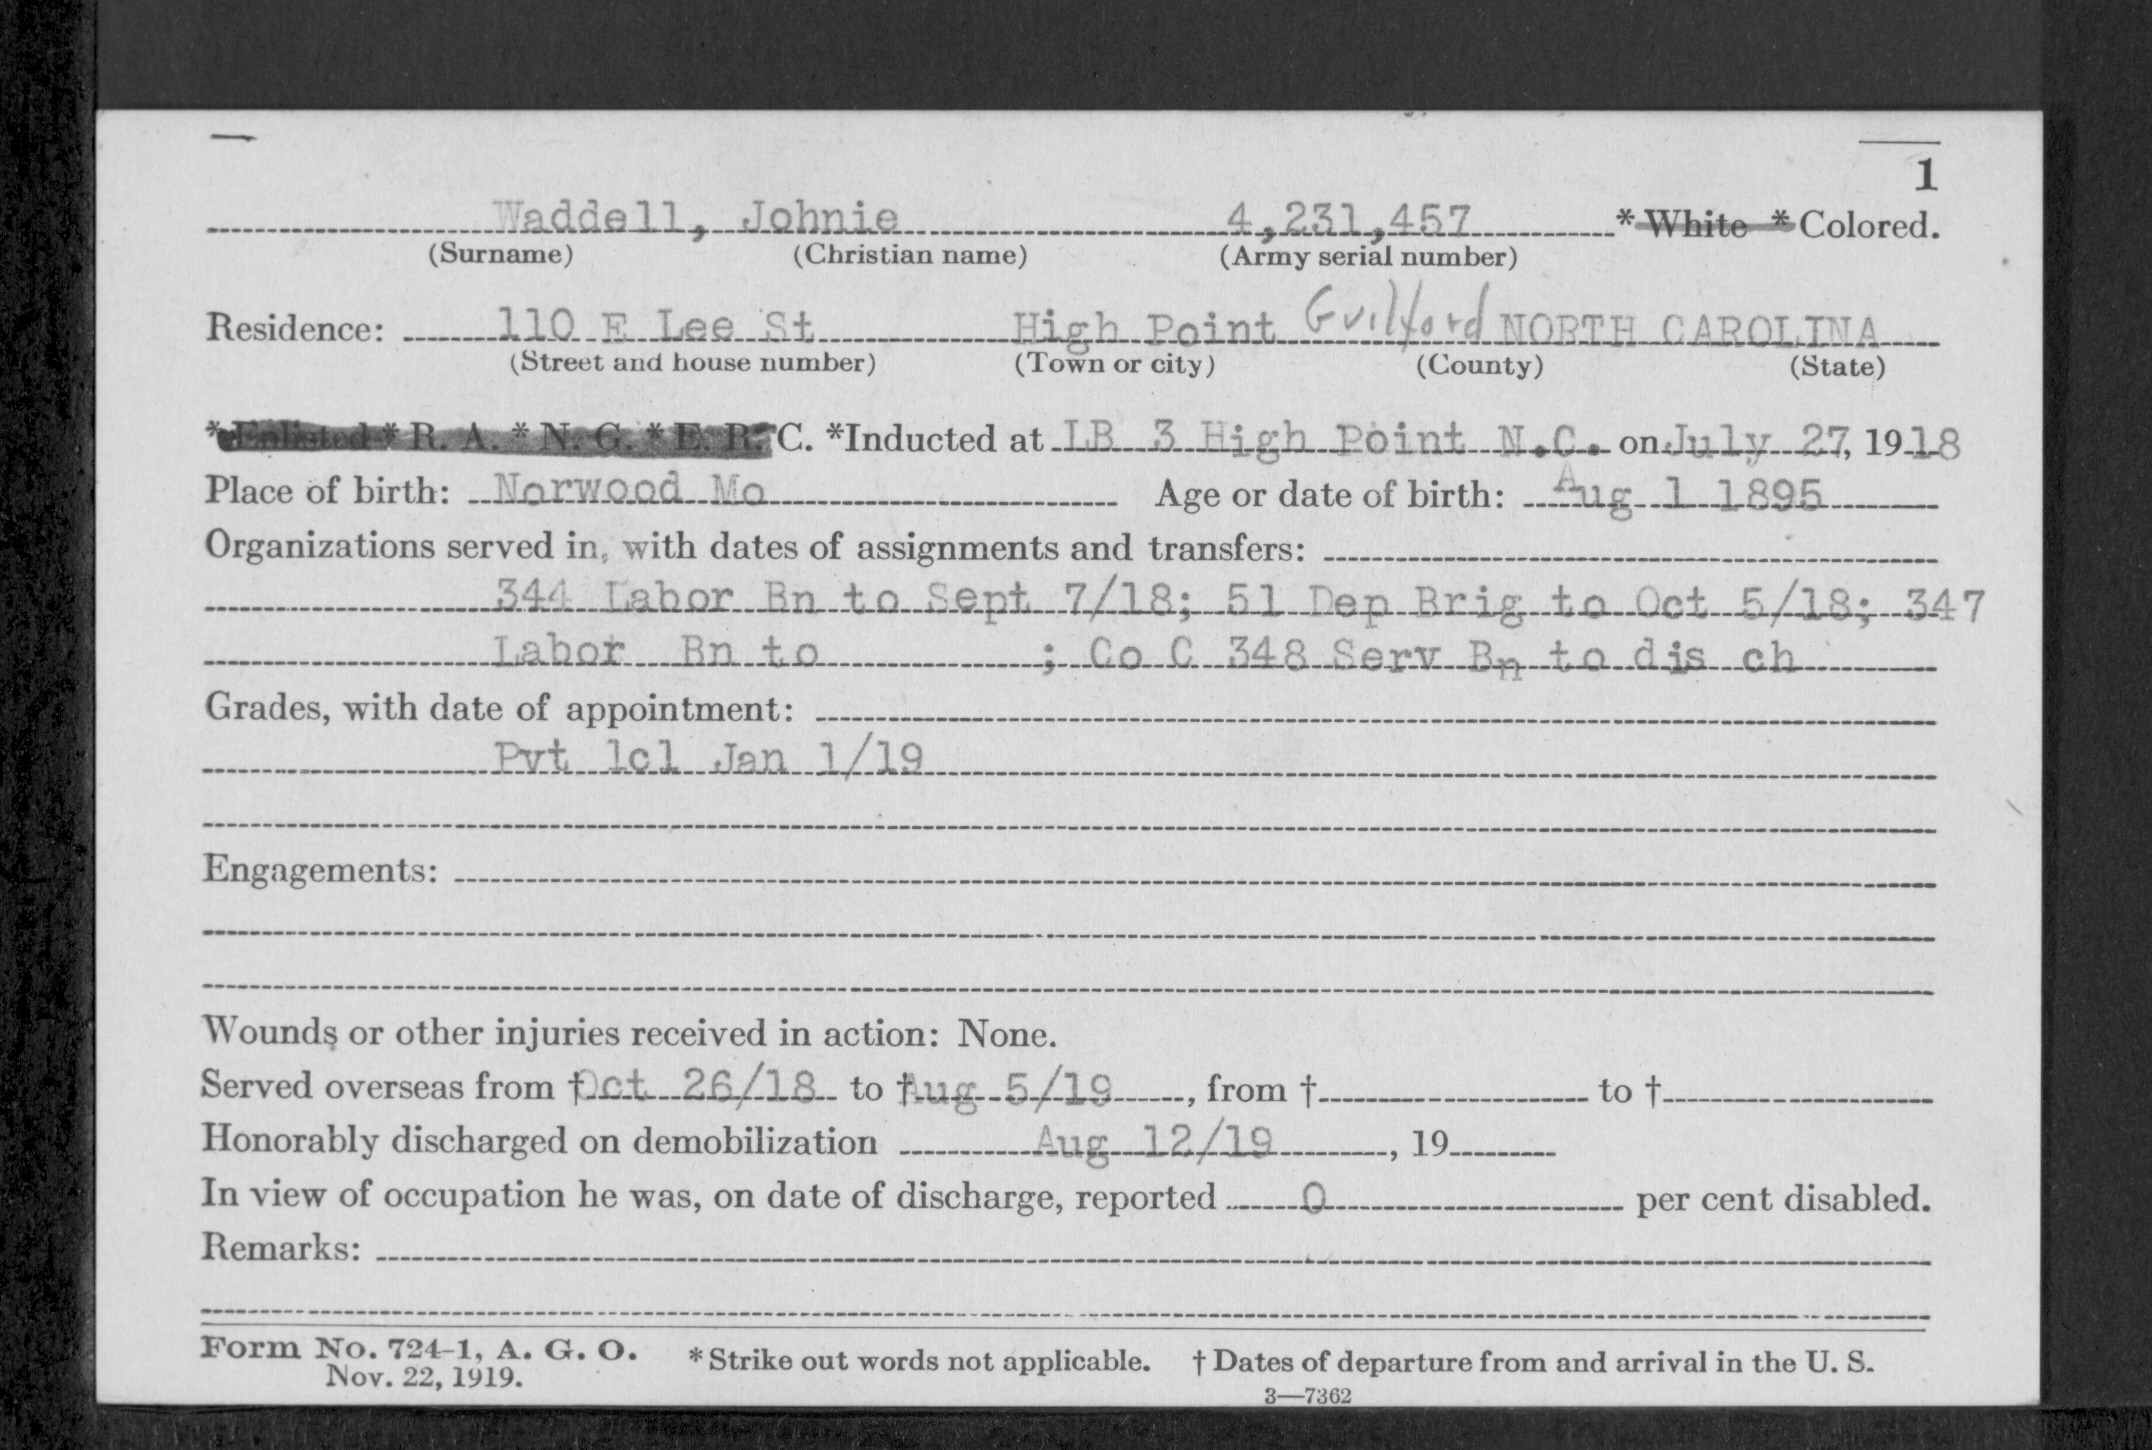 1
Waddell, Johnie 4,231,457 * White * Colored.
(Surname) (Christian name) (Army serial number)
Residence: 110 E Lee St High Point Guilford NORTH CAROLINA
(Street and house number) (Town or city) (County) (State)
*Enlisted * R. A. * N. G. * E. R. C. *Inducted at LB 3 High Point N.C. on July 27, 1918
Place of birth: Norwood Mo Age or date of birth: Aug 1 1895
Organizations served in, with dates of assignments and transfers:
344 Labor Bn to Sept 7/18; 51 Dep Brig to Oct 5/18; 347
Labor Bn to ; Co C 348 Serv Bn to dis ch
Grades, with date of appointment:
Pvt 1cl Jan 1/19
Engagements:
Wounds or other injuries received in action: None.
Served overseas from † Oct 26/18 to † Aug 5/19, from † to †
Honorably discharged on demobilization Aug 12/19, 19
In view of occupation he was, on date of discharge, reported 0 per cent disabled.
Remarks:
Form No. 724-1, A. G. O. * Strike out words not applicable. † Dates of departure from and arrival in the U. S.
Nov. 22, 1919.
3—7362